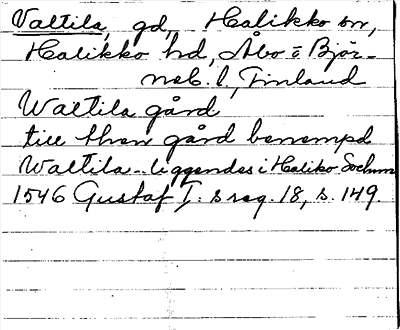 Valtila, gd, Halikko sn,
Halikko hd, Åbo o Björ-
neb. l., Finland
Waltila gård
till then gård benempd
Waltila -- liggendes i Haliko Sochnn
1546 Gustaf I:s reg. 18, s. 149.